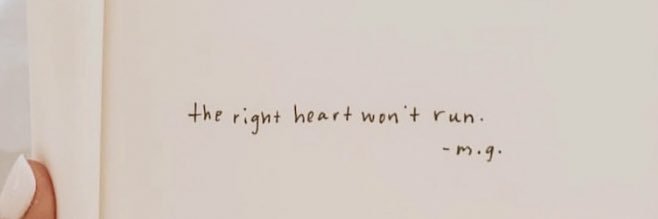 the right heart won't run.
-m.g.